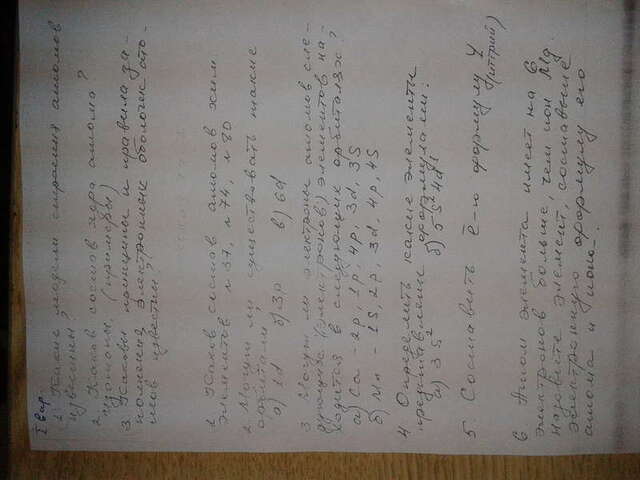 I вар.
1. Какие модели строения атомов
известны?
2. Каков состав ядра атома?
Изотопы. (примеры)
3. Каковы принципы и правила за-
полнения электронных оболочек ато-
мов известны?
1. Каков состав атомов хим
элементов № 37, № 74, № 80
2. Могут ли существовать такие
орбитали?
а) 1d б) 3p в) 6d
3. Могут ли электроны атомов сле-
дующих (электронов) элементов на-
ходится в следующих орбиталях?
а) Ca - 2p, 1p, 4p, 3d, 3S
б) Mn - 1S, 2p, 3d, 4p, 4S
4 Определить какие элементы
представлены формулами:
а) 3S² б) 5S²4d¹
5 Составить ē-ю формулу Y
(иттрий)
6. Атом элемента имеет на 6
электронов больше, чем ион Mg
назовите элемент, составьте
электронную формулу его
атома и иона.